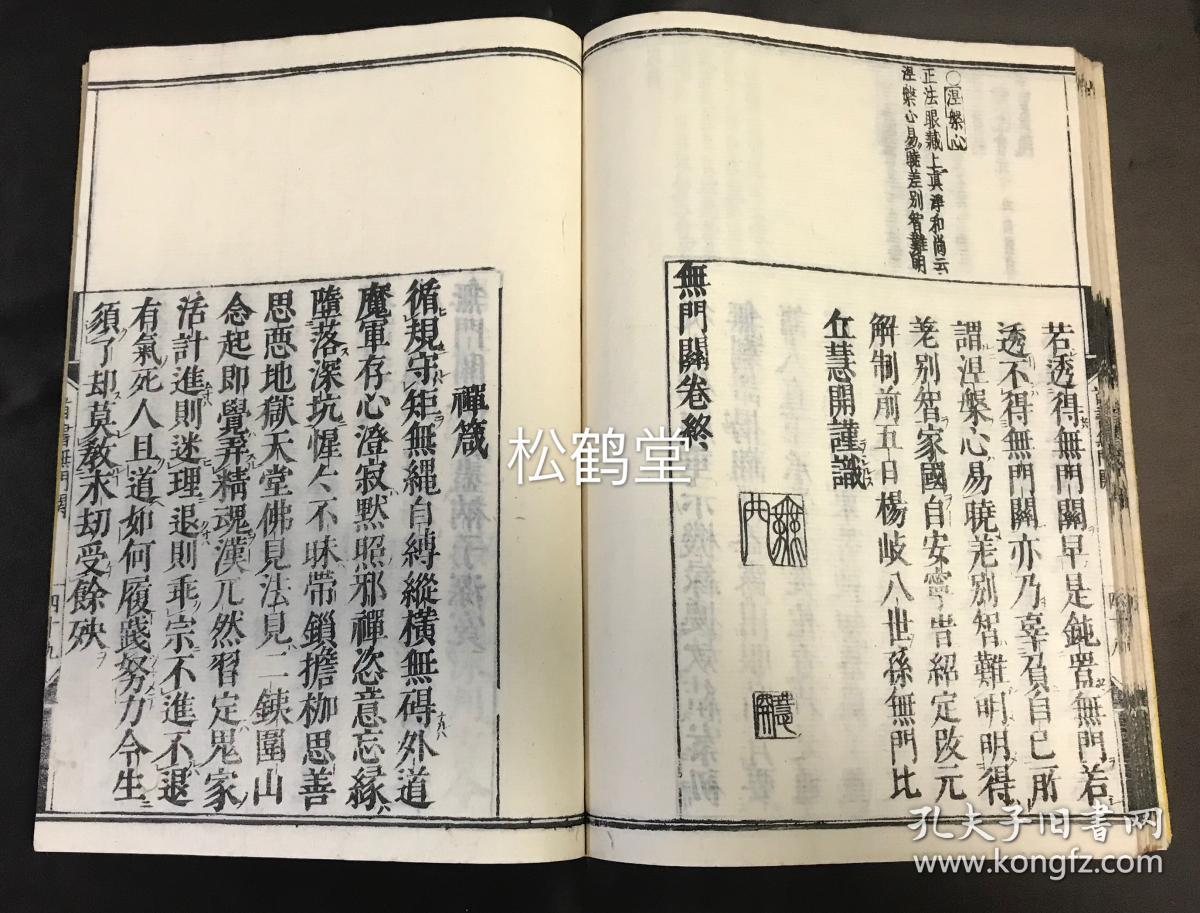 ○涅槃心
正法眼藏上真淨和尚云
涅槃心易曉差別智難明
若透得無門關早是鈍置無門若
透不得無門關亦乃辜負自己所
謂涅槃心易曉差別智難明明得
差別智家國自安寧旹紹定改元
解制前五日楊岐八世孫無門比
丘慧開謹識
無門
慧開
無門關卷終
禪箴
循規守矩無繩自縛縱橫無碍外道
魔軍存心澄寂默照邪禪恣意忘緣
墮落深坑惺〻不昧帶鎖擔枷思善
思惡地獄天堂佛見法見二鐵圍山
念起即覺弄精魂漢兀然習定鬼家
活計進則迷理退則乖宗不進不退
有氣死人且道如何履踐努力今生
須了却莫教永劫受餘殃
無門關
四十九
松鹤堂
孔夫子旧书网
www.kongfz.com